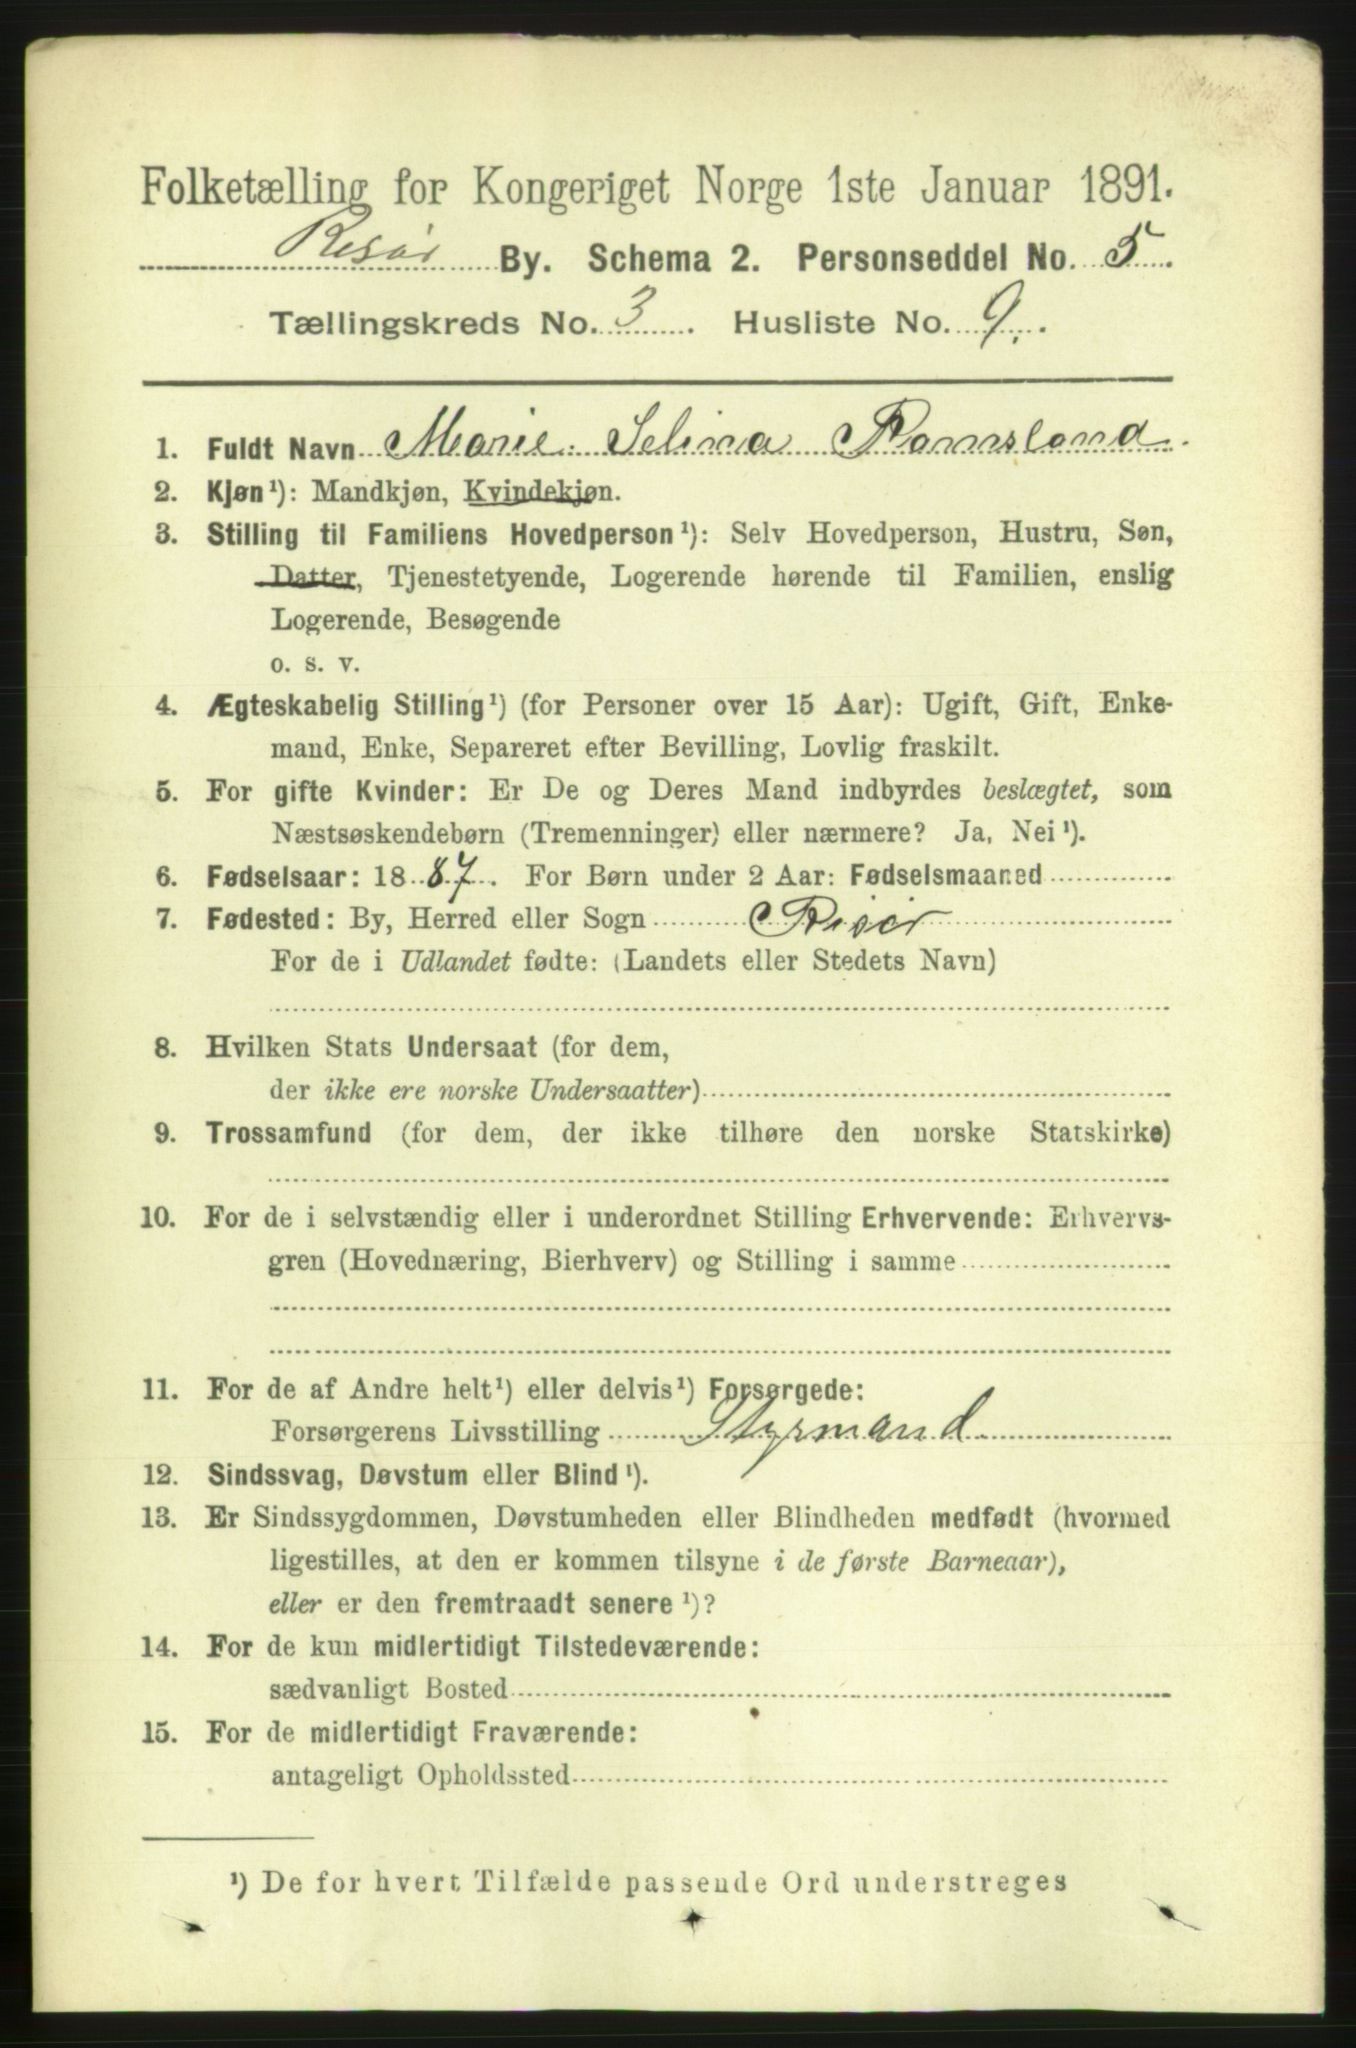 Folketælling for Kongeriget Norge 1ste Januar 1891.
Risør By. Schema 2. Personseddel No. 5.
Tællingskreds No. 3. Husliste No. 9.
1. Fuldt Navn Marie Selina Ramsland.
2. Kjøn¹): Mandkjøn, Kvindekjøn.
3. Stilling til Familiens Hovedperson¹): Selv Hovedperson, Hustru, Søn,
Datter, Tjenestetyende, Logerende hørende til Familien, enslig
Logerende, Besøgende
o. s. v.
4. Ægteskabelig Stilling¹) (for Personer over 15 Aar): Ugift, Gift, Enke-
mand, Enke, Separeret efter Bevilling, Lovlig fraskilt.
5. For gifte Kvinder: Er De og Deres Mand indbyrdes beslægtet, som
Næstsøskendebørn (Tremenninger) eller nærmere? Ja, Nei¹).
6. Fødselsaar: 1887. For Børn under 2 Aar: Fødselsmaaned
7. Fødested: By, Herred eller Sogn Risør
For de i Udlandet fødte: (Landets eller Stedets Navn)
8. Hvilken Stats Undersaat (for dem,
der ikke ere norske Undersaatter)
9. Trossamfund (for dem, der ikke tilhøre den norske Statskirke)
10. For de i selvstændig eller i underordnet Stilling Erhvervende: Erhvervs-
gren (Hovednæring, Bierhverv) og Stilling i samme
11. For de af Andre helt¹) eller delvis¹) Forsørgede:
Forsørgerens Livsstilling Styrmand
12. Sindssvag, Døvstum eller Blind¹).
13. Er Sindssygdommen, Døvstumheden eller Blindheden medfødt (hvormed
ligestilles, at den er kommen tilsyne i de første Barneaar),
eller er den fremtraadt senere¹)?
14. For de kun midlertidigt Tilstedeværende:
sædvanligt Bosted
15. For de midlertidigt Fraværende:
antageligt Opholdssted
¹) De for hvert Tilfælde passende Ord understreges